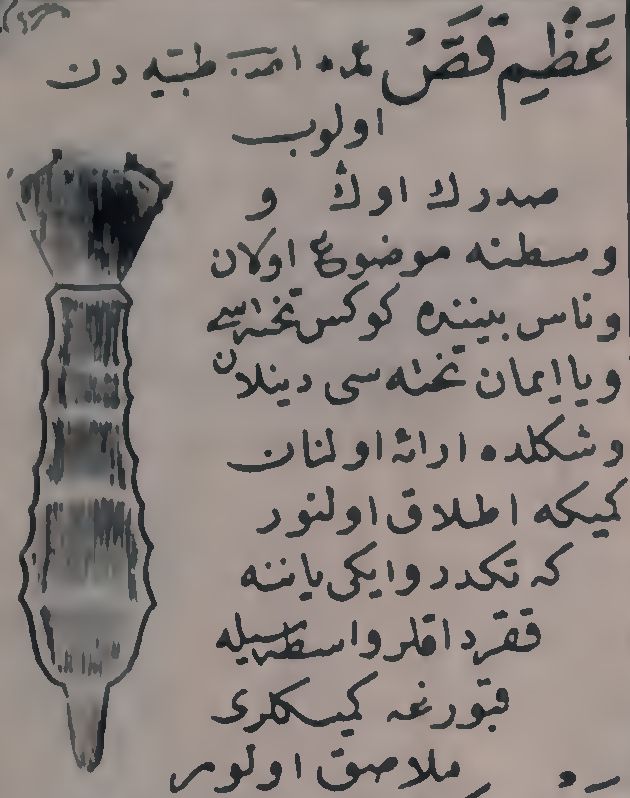 عَظْیم قَصّ طبیه دن
اولوب
صدرك اوڭ و
وسطنه موضوع اولان
وناس بیننده كوكس تخته سی
ویا ایمان تخته سی دینلان
وشكلده ارائه اولنان
كمیكه اطلاق اولنور
كه تكدر و ایكی یاننه
ققرداقلر واسطه سیله
قبورغه كمیكلری
ملاصق اولور